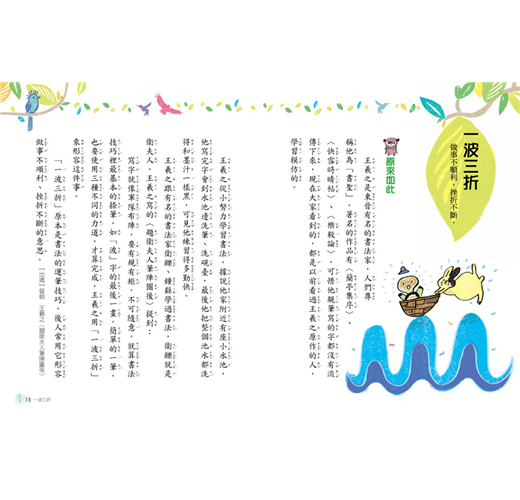 一波三折
做事不順利，挫折不斷。
原來如此
王羲之是東晉有名的書法家，人們尊
稱他為「書聖」。著名的作品有〈蘭亭集序〉、
〈快雪時晴帖〉、〈樂毅論〉，可惜他親筆寫的字都沒有流
傳下來，現在大家看到的，都是以前看過王羲之原作的人，
學習模仿的。
王羲之從小努力學習書法，據說他家附近有座小水池，
他寫完字會到水池邊洗筆、洗硯臺，最後他把整個池水都洗
得和墨汁一樣黑，可見他練習得多勤快。
王羲之跟有名的書法家衛鑠、鍾繇學過書法，衛鑠就是
衛夫人。王羲之寫的〈題衛夫人筆陣圖後〉提到：
寫字就像軍隊布陣，要有規有矩，不可隨意。就算書法
技巧裡最基本的捺筆，如「波」字的最後一畫，簡單的一筆，
也要使用三種不同的力道，才算完成，王羲之用「一波三折」
來形容這件事。
「一波三折」原本是書法的運筆技巧，後人常用它形容
做事不順利、挫折不斷的意思。
【出處】晉朝　王羲之〈題衛夫人筆陣圖後〉
15 一波三折